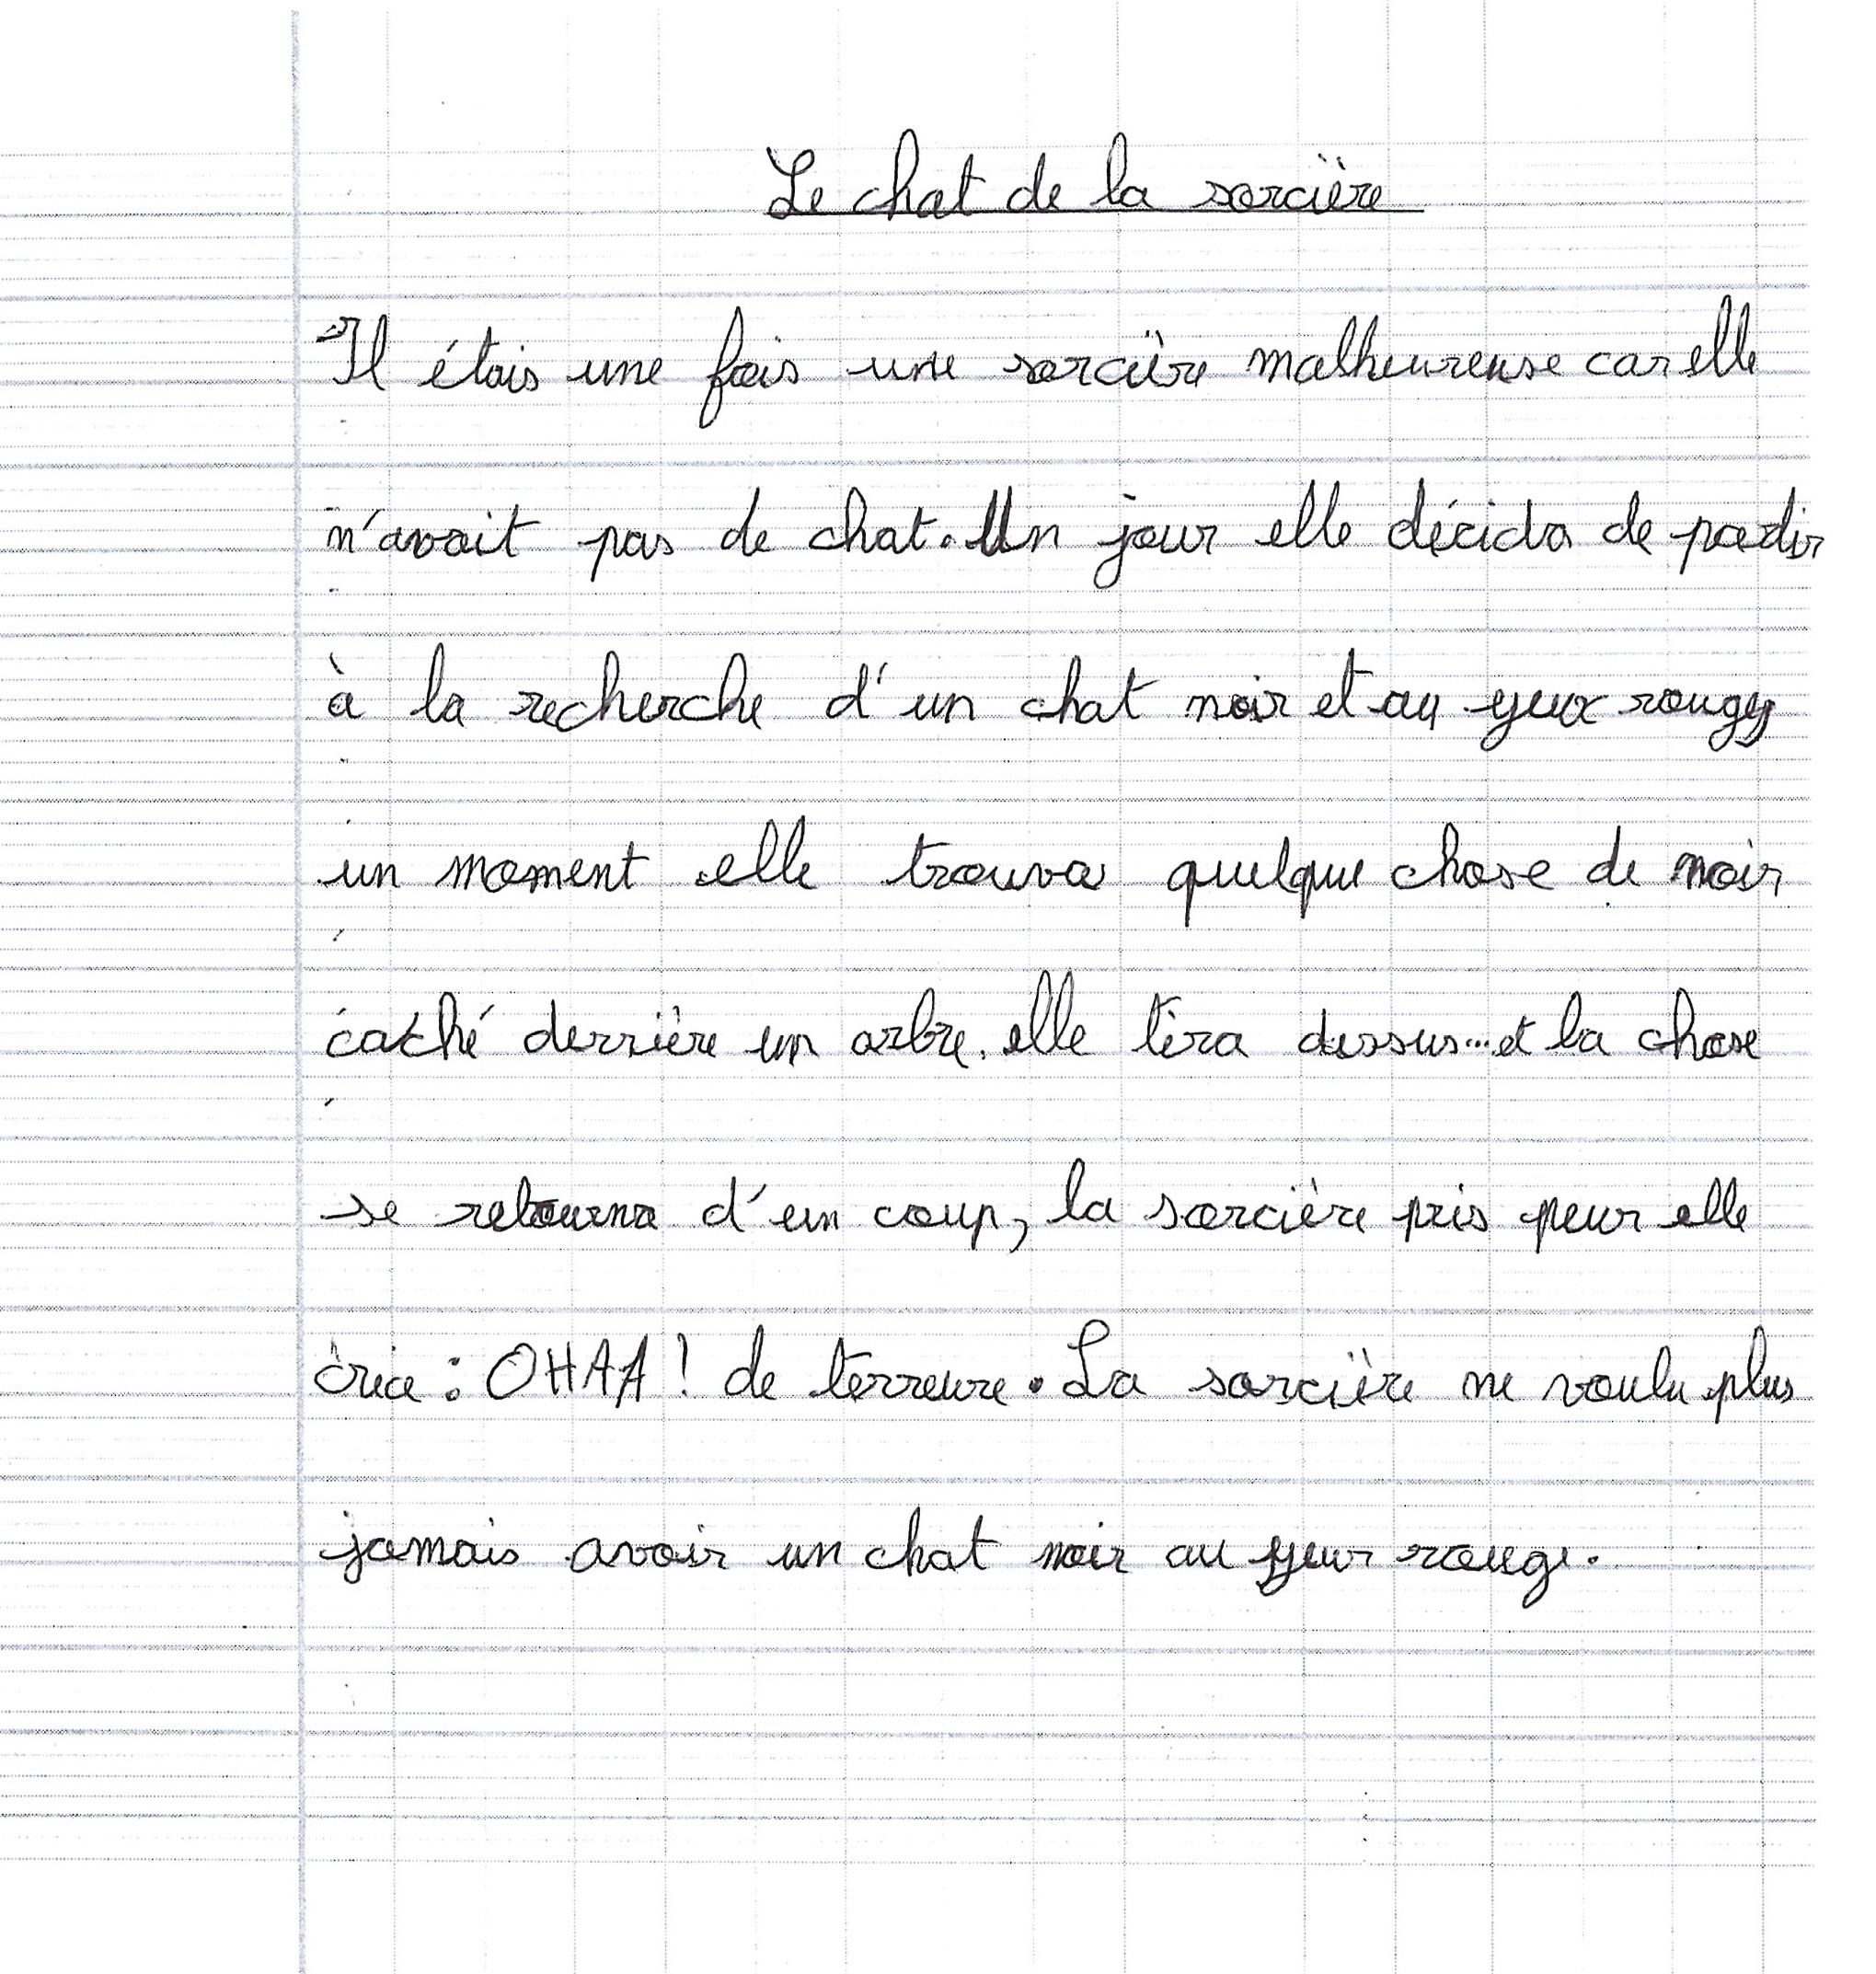 Le chat de la sorcière
Il étais une fois une sorcière malheureuse car elle
n'avait pas de chat. Un jour elle décida de partir
à la recherche d'un chat noir et au yeux rouges
un moment elle trouva quelque chose de noir
caché derrière un arbre. elle tira dessus... et la chose
se retourna d'un coup, la sorcière pris peur elle
cria : OHAA ! de terreure. La sorcière ne voulu plus
jamais avoir un chat noir au yeux rouge.